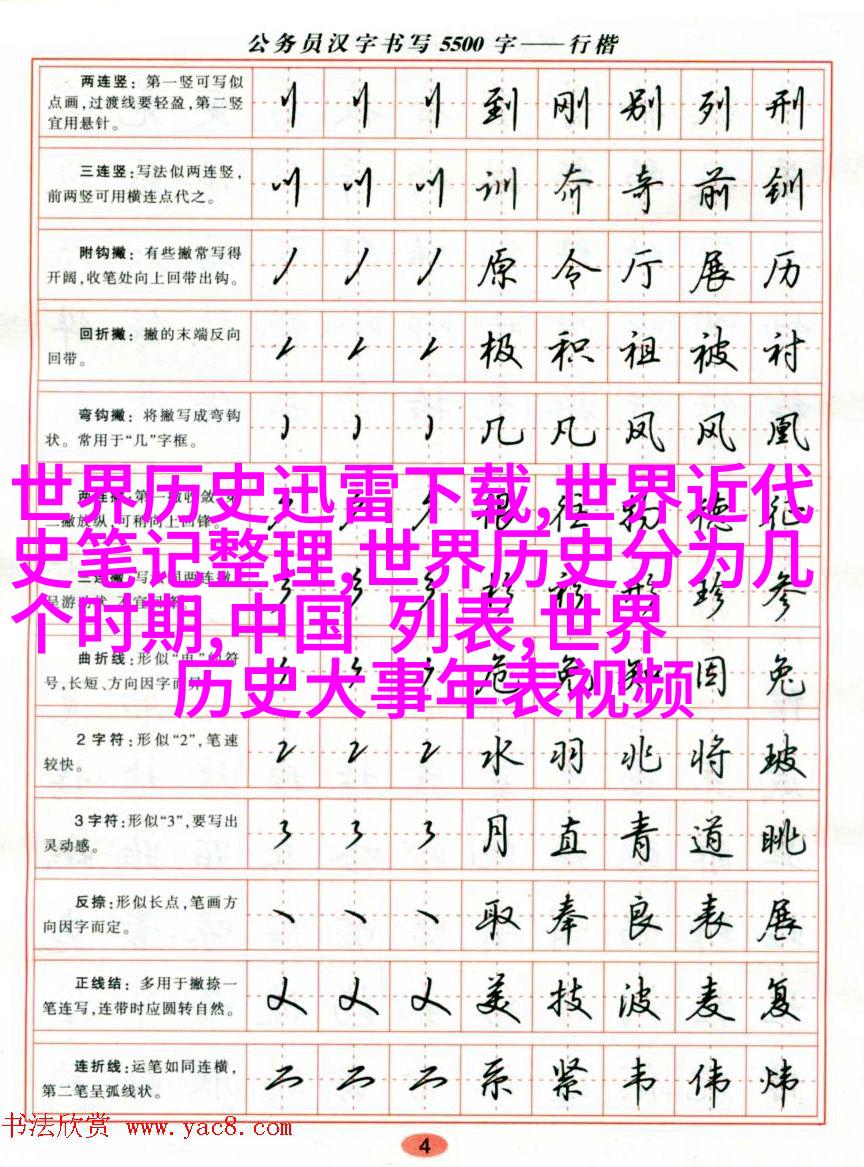 公务员汉字书写 5500 字——行楷
两连竖：第一竖可写似
点画，过渡线要轻盈，第二竖
宜用悬针。
到 刚 别 列 刑
三连竖：写法似两连竖，
前两竖可用横连点代之。
训 奔 奇 前 钏
附钩撇：有些撇常写得
开阔，收笔处向上回带出钩。
原 令 厅 展 历
回折撇：撇的末端反向
回带。
极 积 祖 被 衬
弯钩撇：将撇写成弯钩
状。常用于“几”字框。
几 凡 凤 风 凰
世界历史迅雷下载,世界近代
史笔记整理,世界历史分为几
个时期,中国 列表,世界
历史大事年表视频
德 征
珍 参
曲折线：形似
号，长短、方向因字而
危 免 知 因 兔
2字符：形似“2”，笔速
较快。
水 羽 兆 将 玻
3字符：形似“3”，要写出
灵动感。
月 直 青 道 眺
反捺：形似长点，笔画方
向因字而定。
取 奉 良 表 展
正线结：多用于撇捺一
笔连写，连带时应圆转自然。
美 技 波 麦 复
连折线：运笔如同连横，
第二笔呈弧线状。
系 紧 韦 伟 炜
书法欣赏 www.yac8.com
4